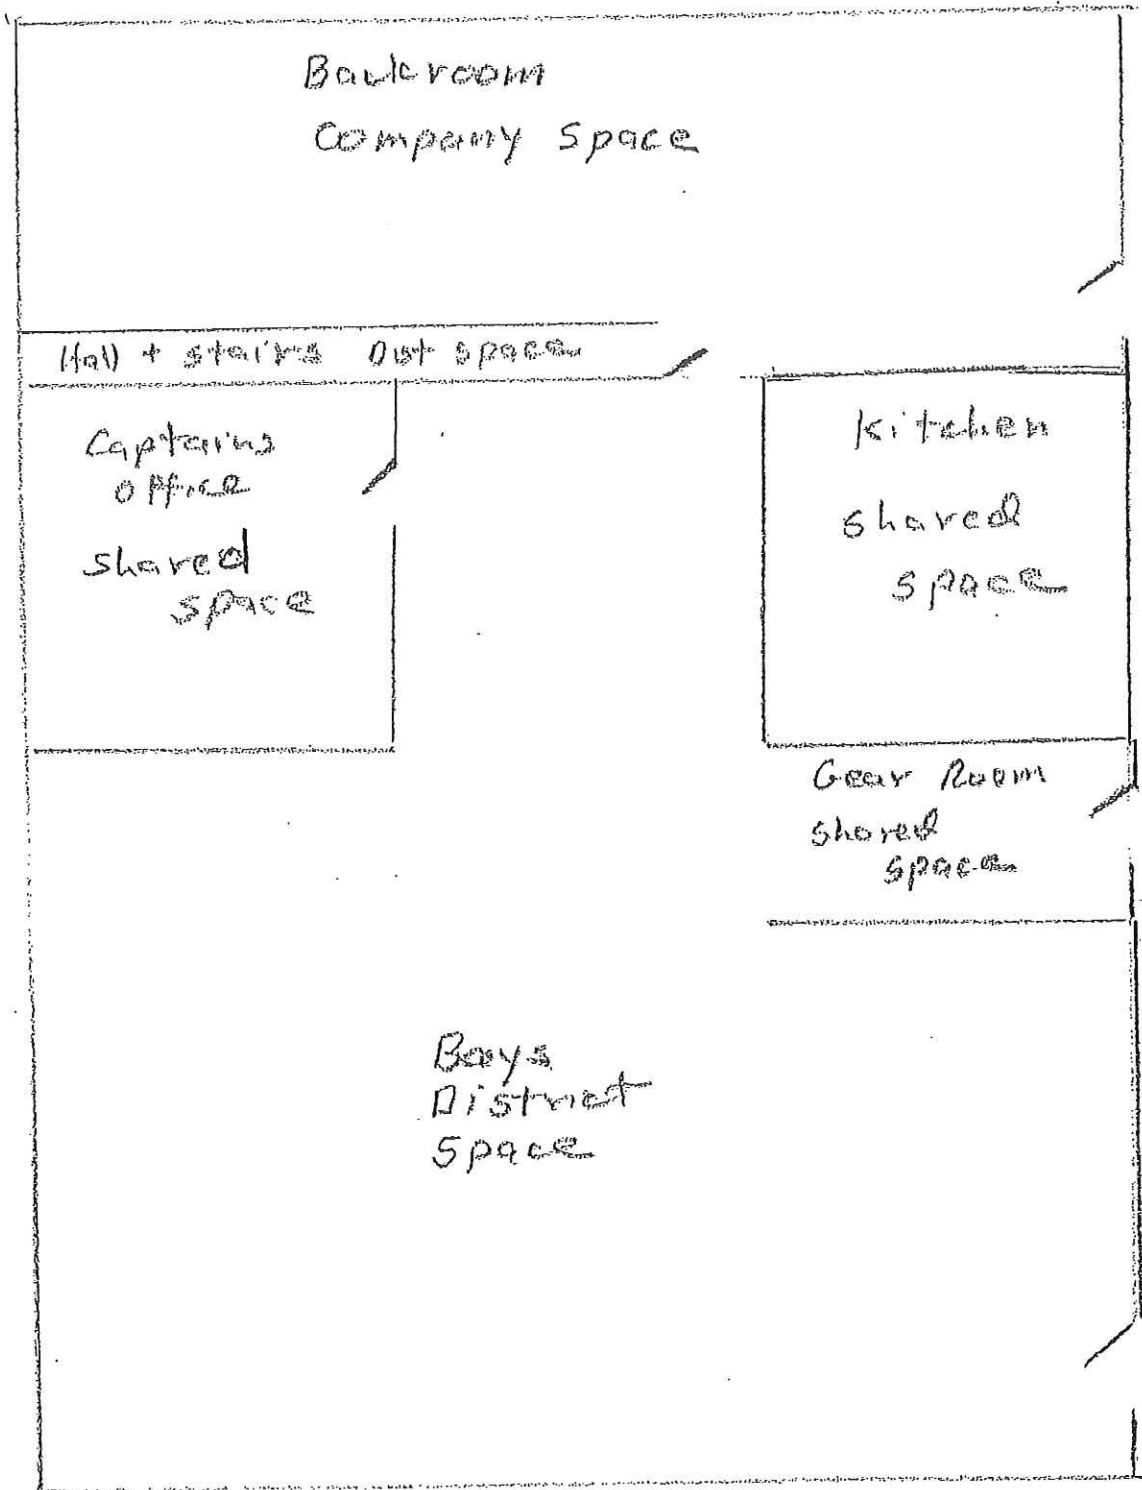 Backroom
Company Space
Hall + stairs Dist space
Captains
office
shared
space
Kitchen
shared
space
Gear Room
shared
space
Bays
District
Space